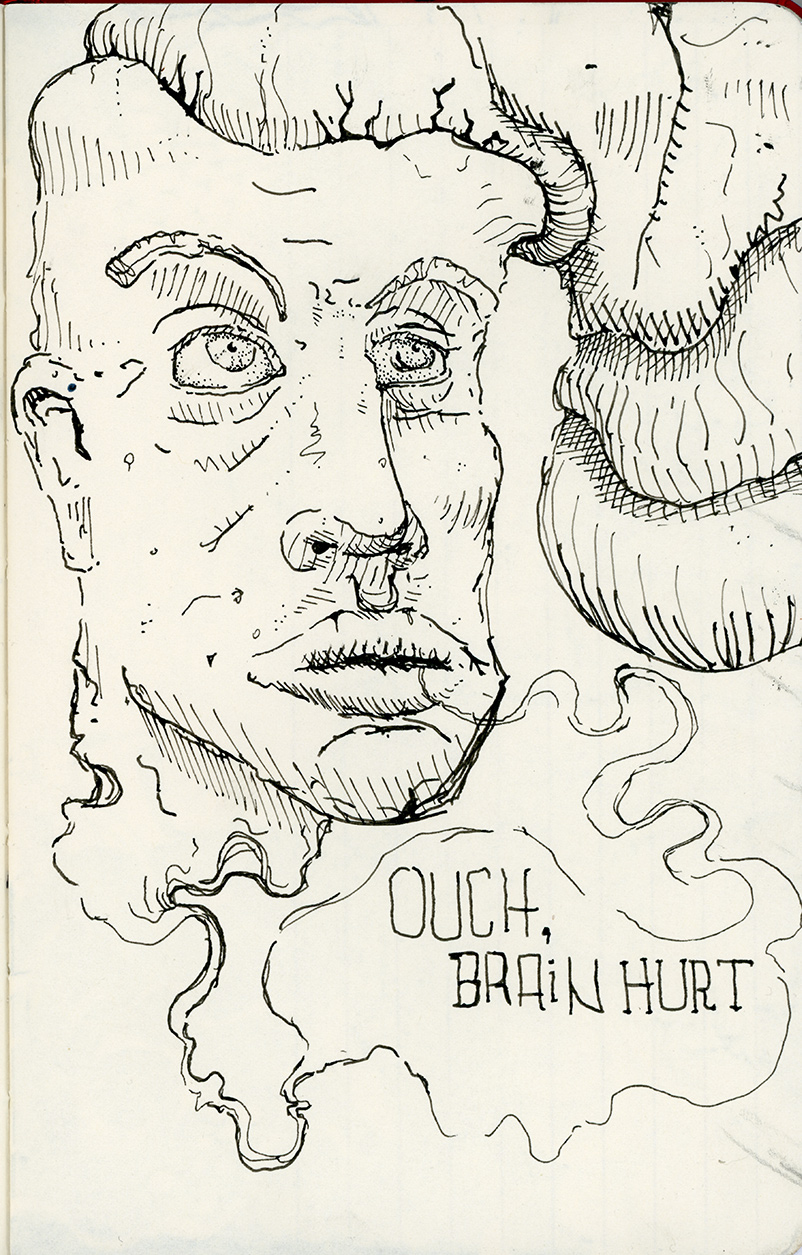 OUCH,
BRAiN HURT